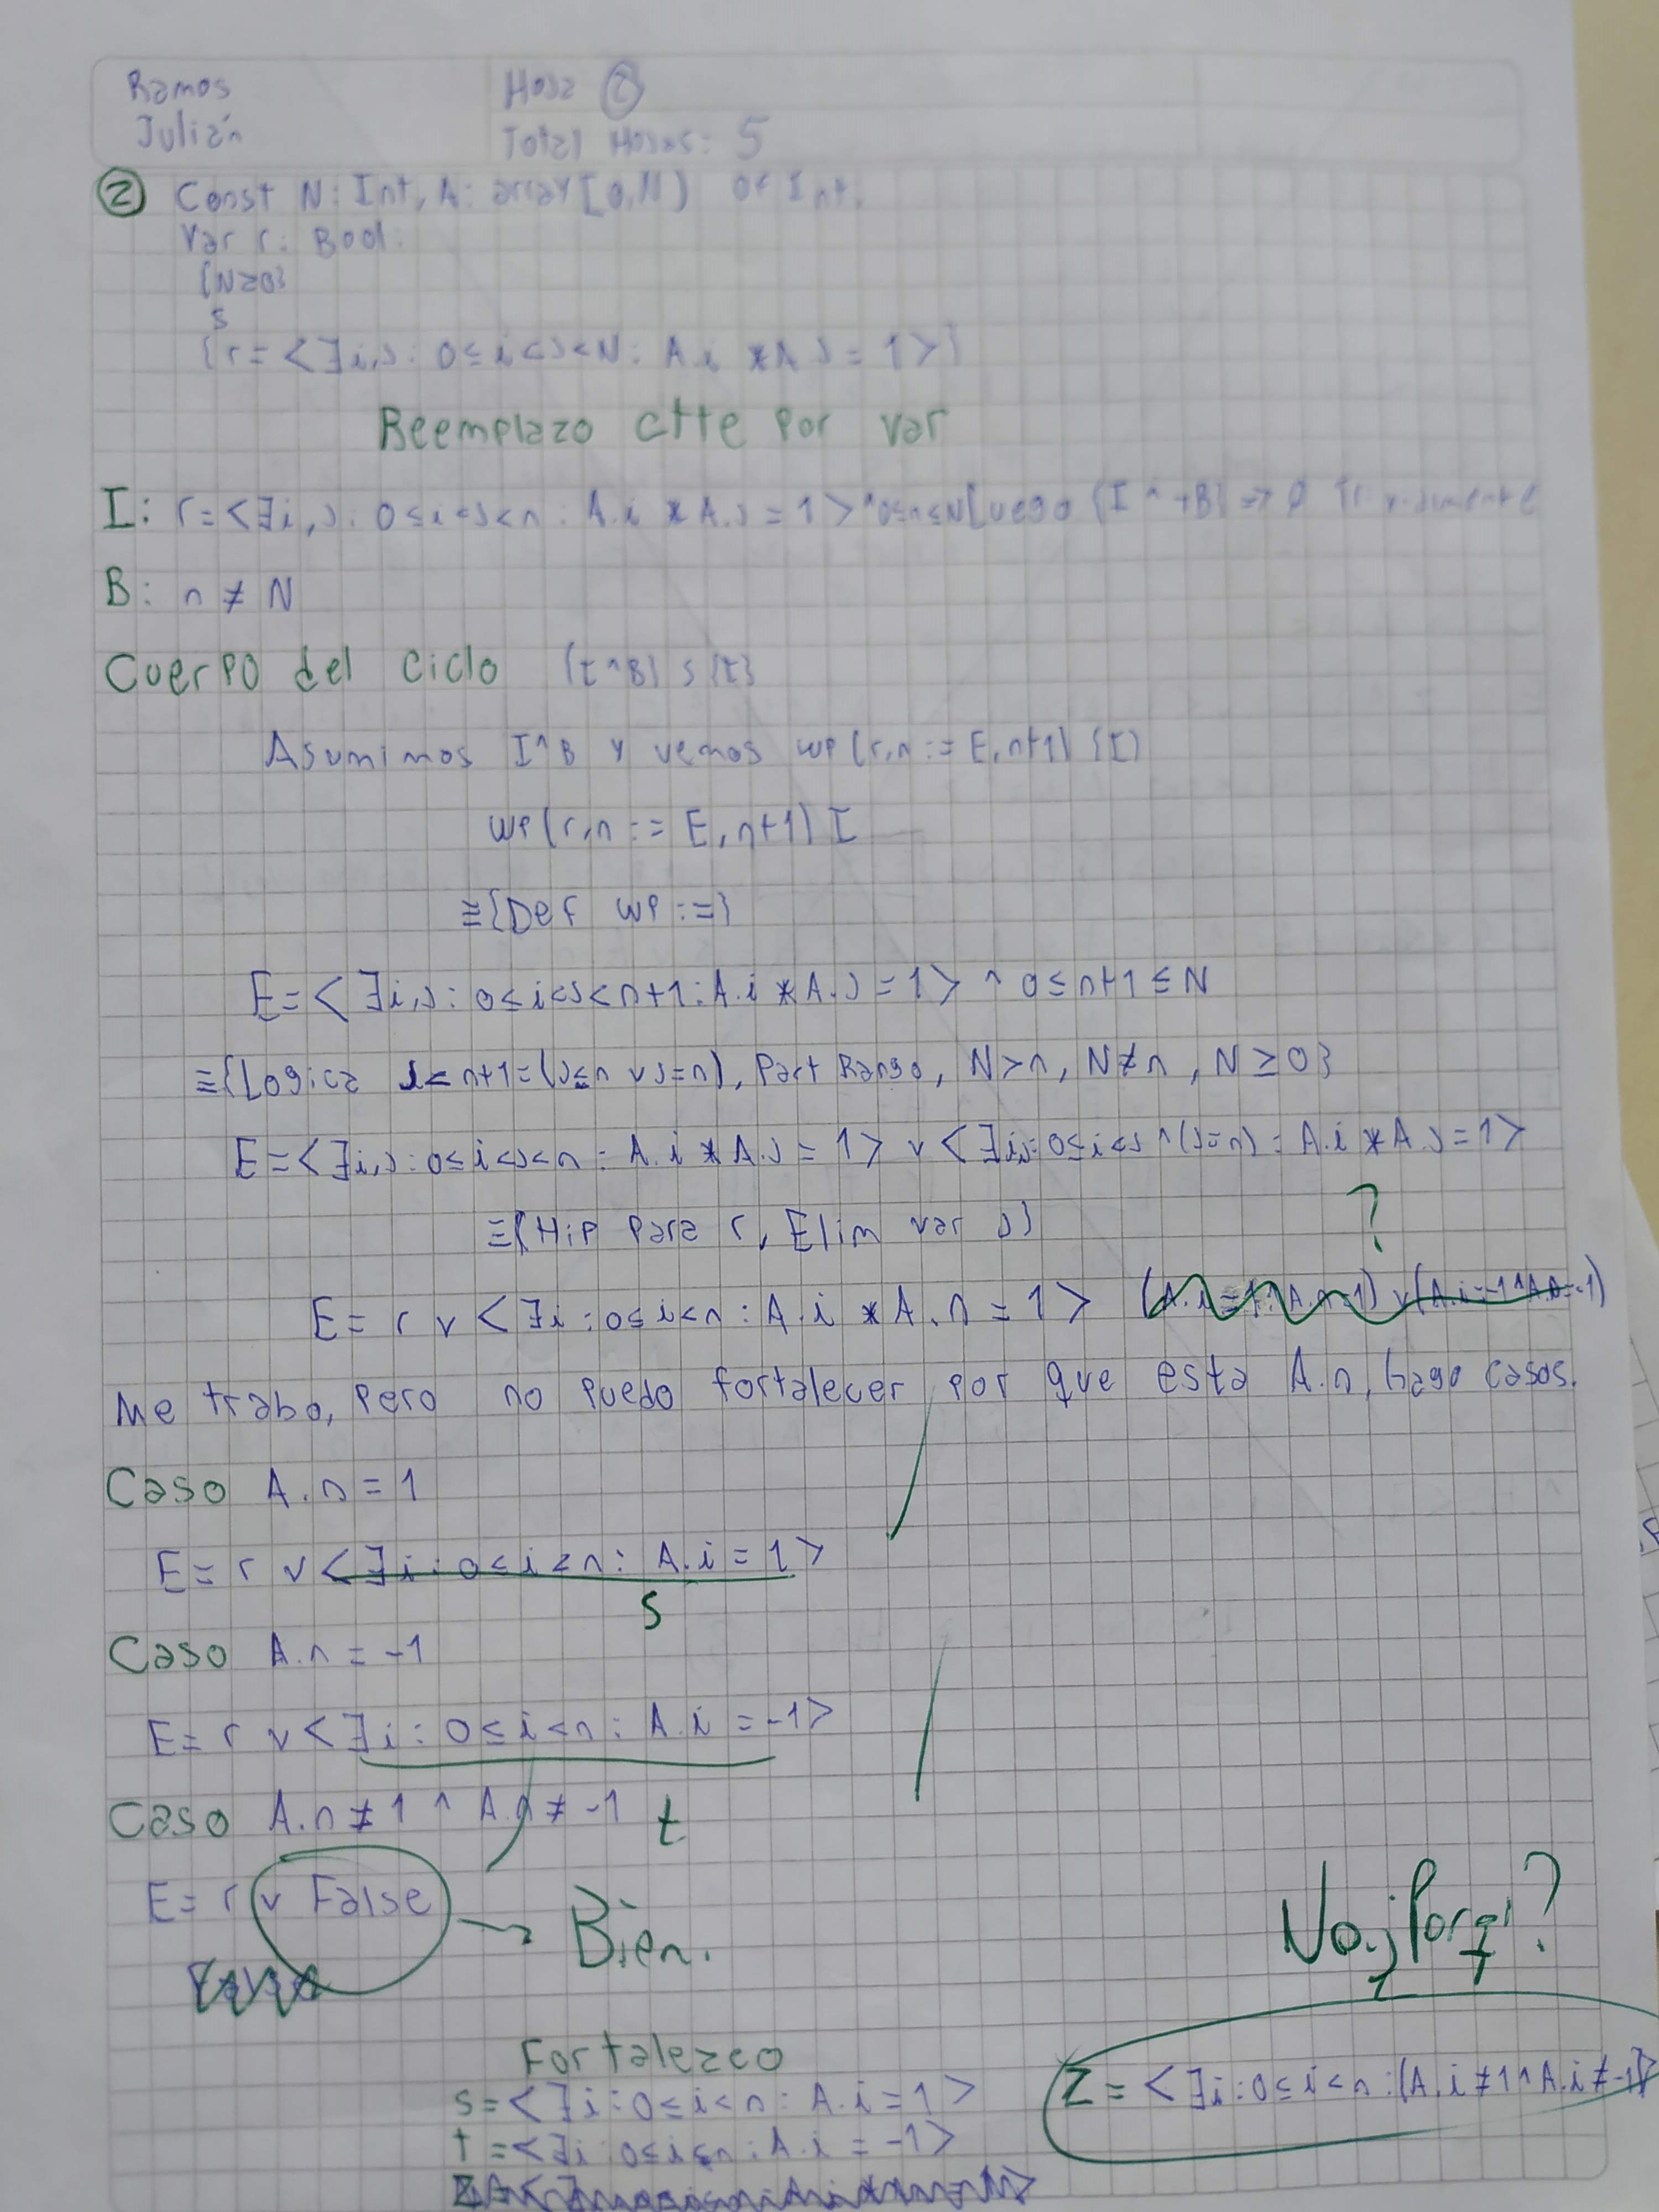 Ramos
Julián
Hoja ②
Total Hojas: 5
② Const N: Int, A: array[0,N) of Int;
Var r: Bool;
{N≥0}
S
{r = <∃i,j : 0≤i<j<N : A.i * A.j = 1>}
Reemplazo ctte por var
I: r = <∃i,j : 0≤i<j<n : A.i * A.j = 1> ^ 0≤n≤N Luego (I ^ ¬B) => Trivialmente
B: n ≠ N
Cuerpo del Ciclo {I^B} S {I}
Asumimos I^B y vemos wp(r,n := E,n+1) (I)
wp(r,n := E,n+1) I
≡{Def wp :=}
E = <∃i,j : 0≤i<j<n+1 : A.i * A.j = 1> ^ 0≤n+1≤N
≡{Logica j<n+1=(j≤n v j=n), Part Rango, N>n, N≠n, N≥0}
E = <∃i,j : 0≤i<j<n : A.i * A.j = 1> v <∃i,j : 0≤i<j ^ (j=n) : A.i * A.j = 1>
≡{Hip para r, Elim var j}
?
E = r v <∃i : 0≤i<n : A.i * A.n = 1> (A.i=1 ^ A.n=1) v (A.i=-1 ^ A.n=-1)
Me trabo, pero no puedo fortalecer por que esta A.n, hago casos.
Caso A.n = 1
E = r v <∃i : 0≤i<n : A.i = 1>
s
Caso A.n = -1
E = r v <∃i : 0≤i<n : A.i = -1>
t
Caso A.n ≠ 1 ^ A.n ≠ -1
E = r v False
Bien.
No. ¿Porq'?
Fortalezco
s = <∃i : 0≤i<n : A.i = 1>
t = <∃i : 0≤i≤n : A.i = -1>
Z = <∃i : 0≤i<n : (A.i ≠ 1 ^ A.i ≠ -1)>